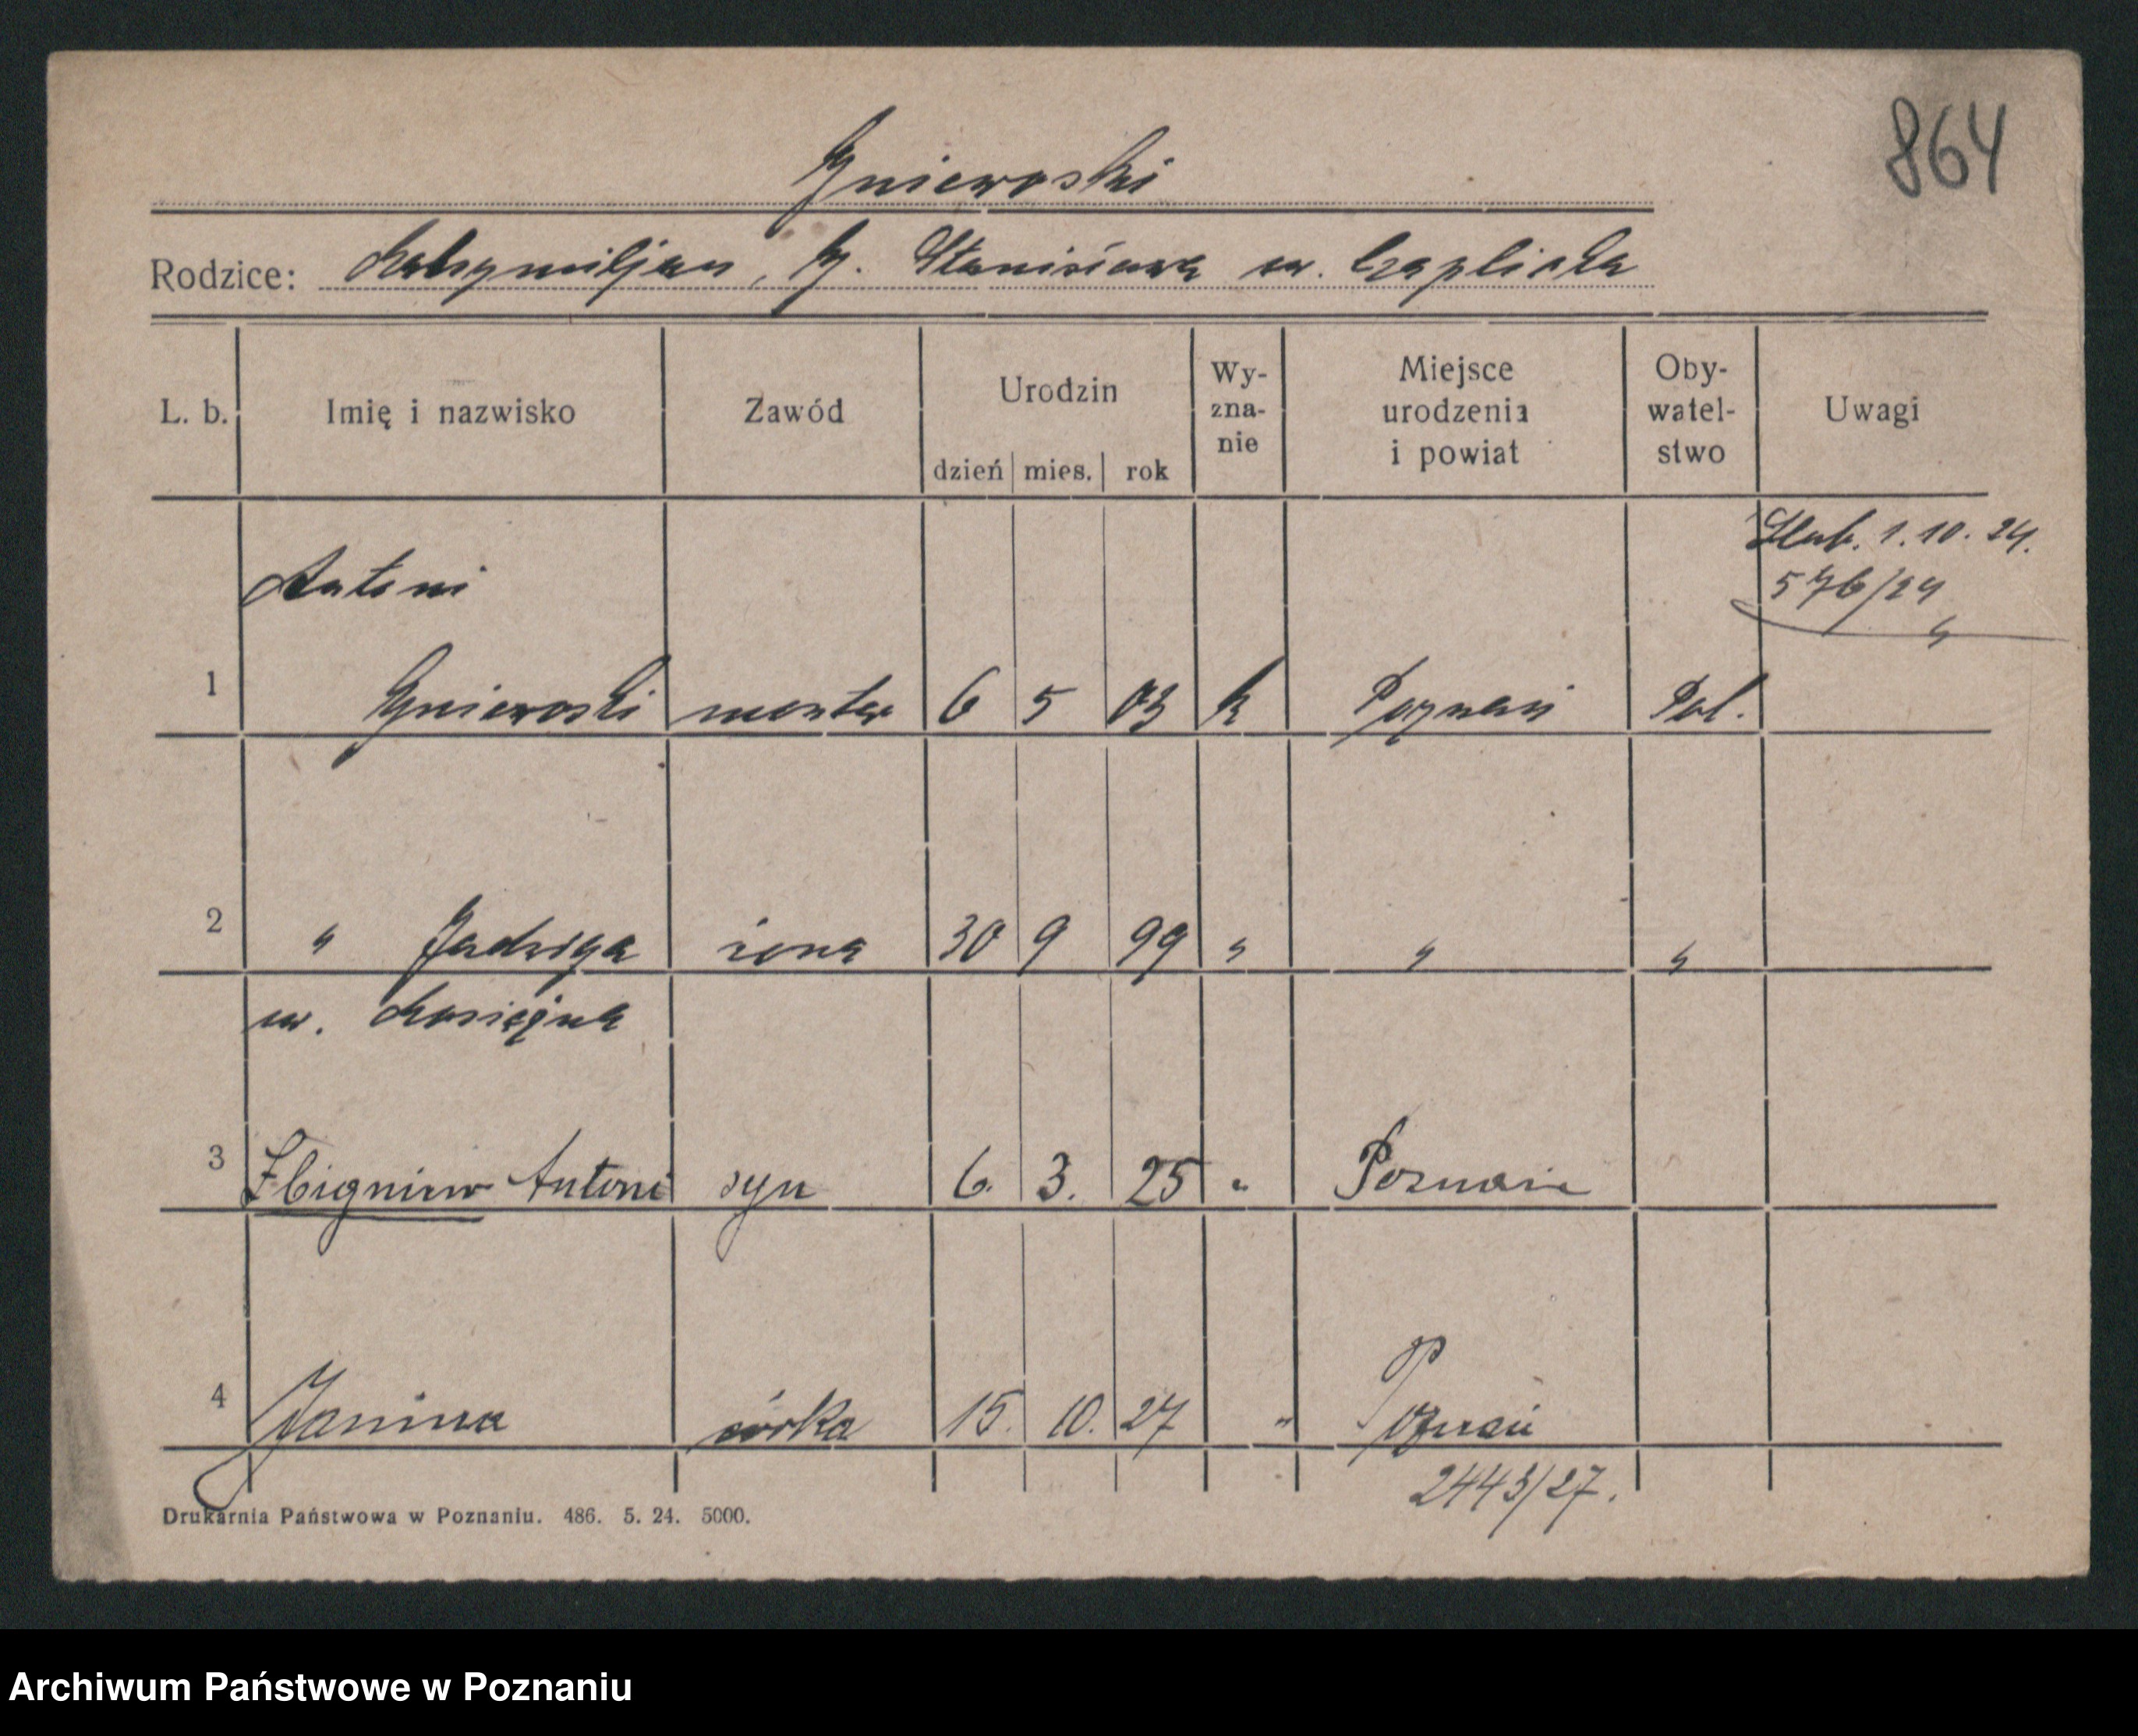 864
Gniewoski
Rodzice: Maksymiljan, G. Stanisława ur. Czaplicka
L. b. Imię i nazwisko Zawód Urodzin dzień mies. rok Wy-zna-nie Miejsce urodzenia i powiat Oby-watel-stwo Uwagi
Ślub. 1. 10. 24.
576/24
Antoni
1 Gniewoski monter 6 5 03 k Poznań Pol.
2 " Jadwiga żona 30 9 99 " " "
ur.
3 Zbigniew Antoni syn 6. 3. 25 " Poznań
4 Janina córka 15. 10. 27 " Poznań
2443/27.
Drukarnia Państwowa w Poznaniu. 486. 5. 24. 5000.
Archiwum Państwowe w Poznaniu